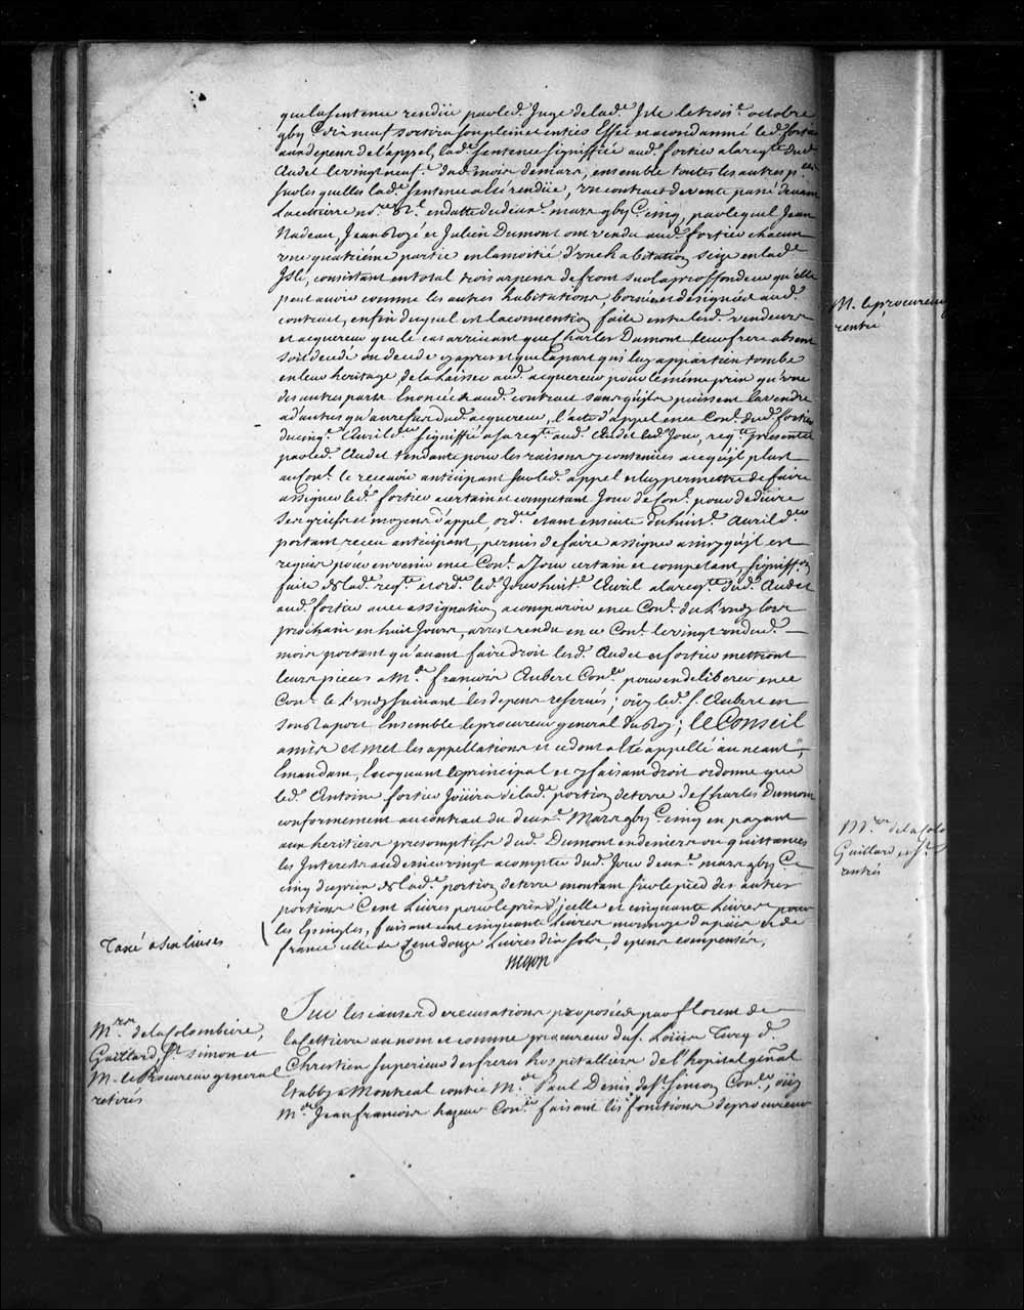 que la sentence rendüe par led. Juge de lad.e Isle le trois.e octobre
gbij C dix neuf sortira son plein et entier Effet et a condamné led. fortier
aux depens de l'appel, lad.e sentence signiffiée aud. fortier a la reqte dud.
Audet le vingt neuf.e dud. mois de mars, ensemble toutes les autres p.ces
sur lesquelles lad.e sentence a été rendüe, un contract de vente passé devant
Lacetiere no.re en datte du deux.e mars gbij C cinq, par lequel Jean
Nadeau, Jean Rozé et Julien Dumont ont vendu aud. fortier chacun
une quatriéme partie en la moitié d'une habitation seize en lad.e
Isle, consistant en total trois arpens de front sur la proffondeur qu'elle
peut avoir comme les autres habitations bornée et designée aud.
contract, enfin duquel est la convention faite entre lesd. vendeurs
et acquereur que le cas arrivant que Charles Dumont leur frere absent
soit decedé ou decede cy apres et que la part qui luy appartien tombe
en leur heritage de la laisser aud. acquereur pour le même prix qu'une
des autres parts Enoncée aud. contract sans qu'ils puissent la vendre
a d'autres qu'au refus dud. acquereur, l'acte d'appel en ce Con.l dud. fortier
du cinq.e Avril d.er signiffié a sa reqte aud. Audet led. Jour, reqte presentée
par led. Audet tendante pour les raisons y contenües a ce qu'il plust
au Con.l le recevoir anticipant sur led. appel et luy permettre de faire
assigner led. fortier a certain et competant Jour de Con.l pour deduire
ses griefs et moyens d'appel, ord.ce etant ensuite du huit.e Avril d.er
portant receu anticipant, permis de faire assigner ainsy qu'il est
requis pour en venir en ce Con.l a Jour certain et competant, signiff.on
faite de lad. reqte et ord.ce led. Jour huit.e Avril a la reqte dud. Audet
aud. fortier avec assignation a comparoir en ce Con.l du Lundy lors
prochain en huit Jours, arrest rendu en ce Con.l le vingt un dud.
mois portant qu'avant faire droit lesd. Audet et fortier mettront
leurs pieces a M.e francois Aubert Con.er pour en deliberer en ce
Con.l le Lundy suivant les depens reservés; oüy led. s. Aubert en
son Raport Ensemble le procureur general du Roy; Le Conseil
a mis et met les appellations et ce dont a été appellé au neant,
Emandant, Evoquant le principal et y faisant droit ordonne que
led. Antoine fortier Joüira de lad. portion de terre de Charles Dumont
conformement au contract du deux.e Mars gbij C cinq en payant
aux heritiers presomptifs dud. Dumont en deniers ou quittances
les Interests au denier vingt a compter dud. Jour deux.e mars gbij C
cinq du prix de lad.e portion de terre montant sur le pied des autres
portions Cent Livres pour le prix d'jcelle et cinquante Livres pour
les Epingles, faisant cent cinquante Livres monnoye du païs et de
france celle de Cent douze Livres dix sols, depens compensés.
Begon
Taxé a six livres
Sur les causes de recusations proposées par florent de
lacettiere au nom et comme procureur du f. Loüis Turcq d.
Chretien superieur des freres hospitalliers de l'hopital gñal
Etably a Montreal contre M.e Paul Denis de St Simon Con.er, oüy
M.e Jean francois hazeur Con.er faisant les fonctions de procureur
M.rs de la Colombiere,
Gaillard, St simon et
M. le Procureur general
retirés
M. le procureur
rentré
M.rs de la Colo
Gaillard et St
rentrés